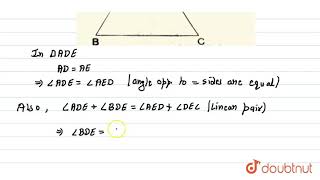 B C
In △ADE
AD = AE
⇒ ∠ADE = ∠AED (angle opp to = sides are equal)
Also, ∠ADE + ∠BDE = ∠AED + ∠DEC (Linear pair)
⇒ ∠BDE =
doubtnut